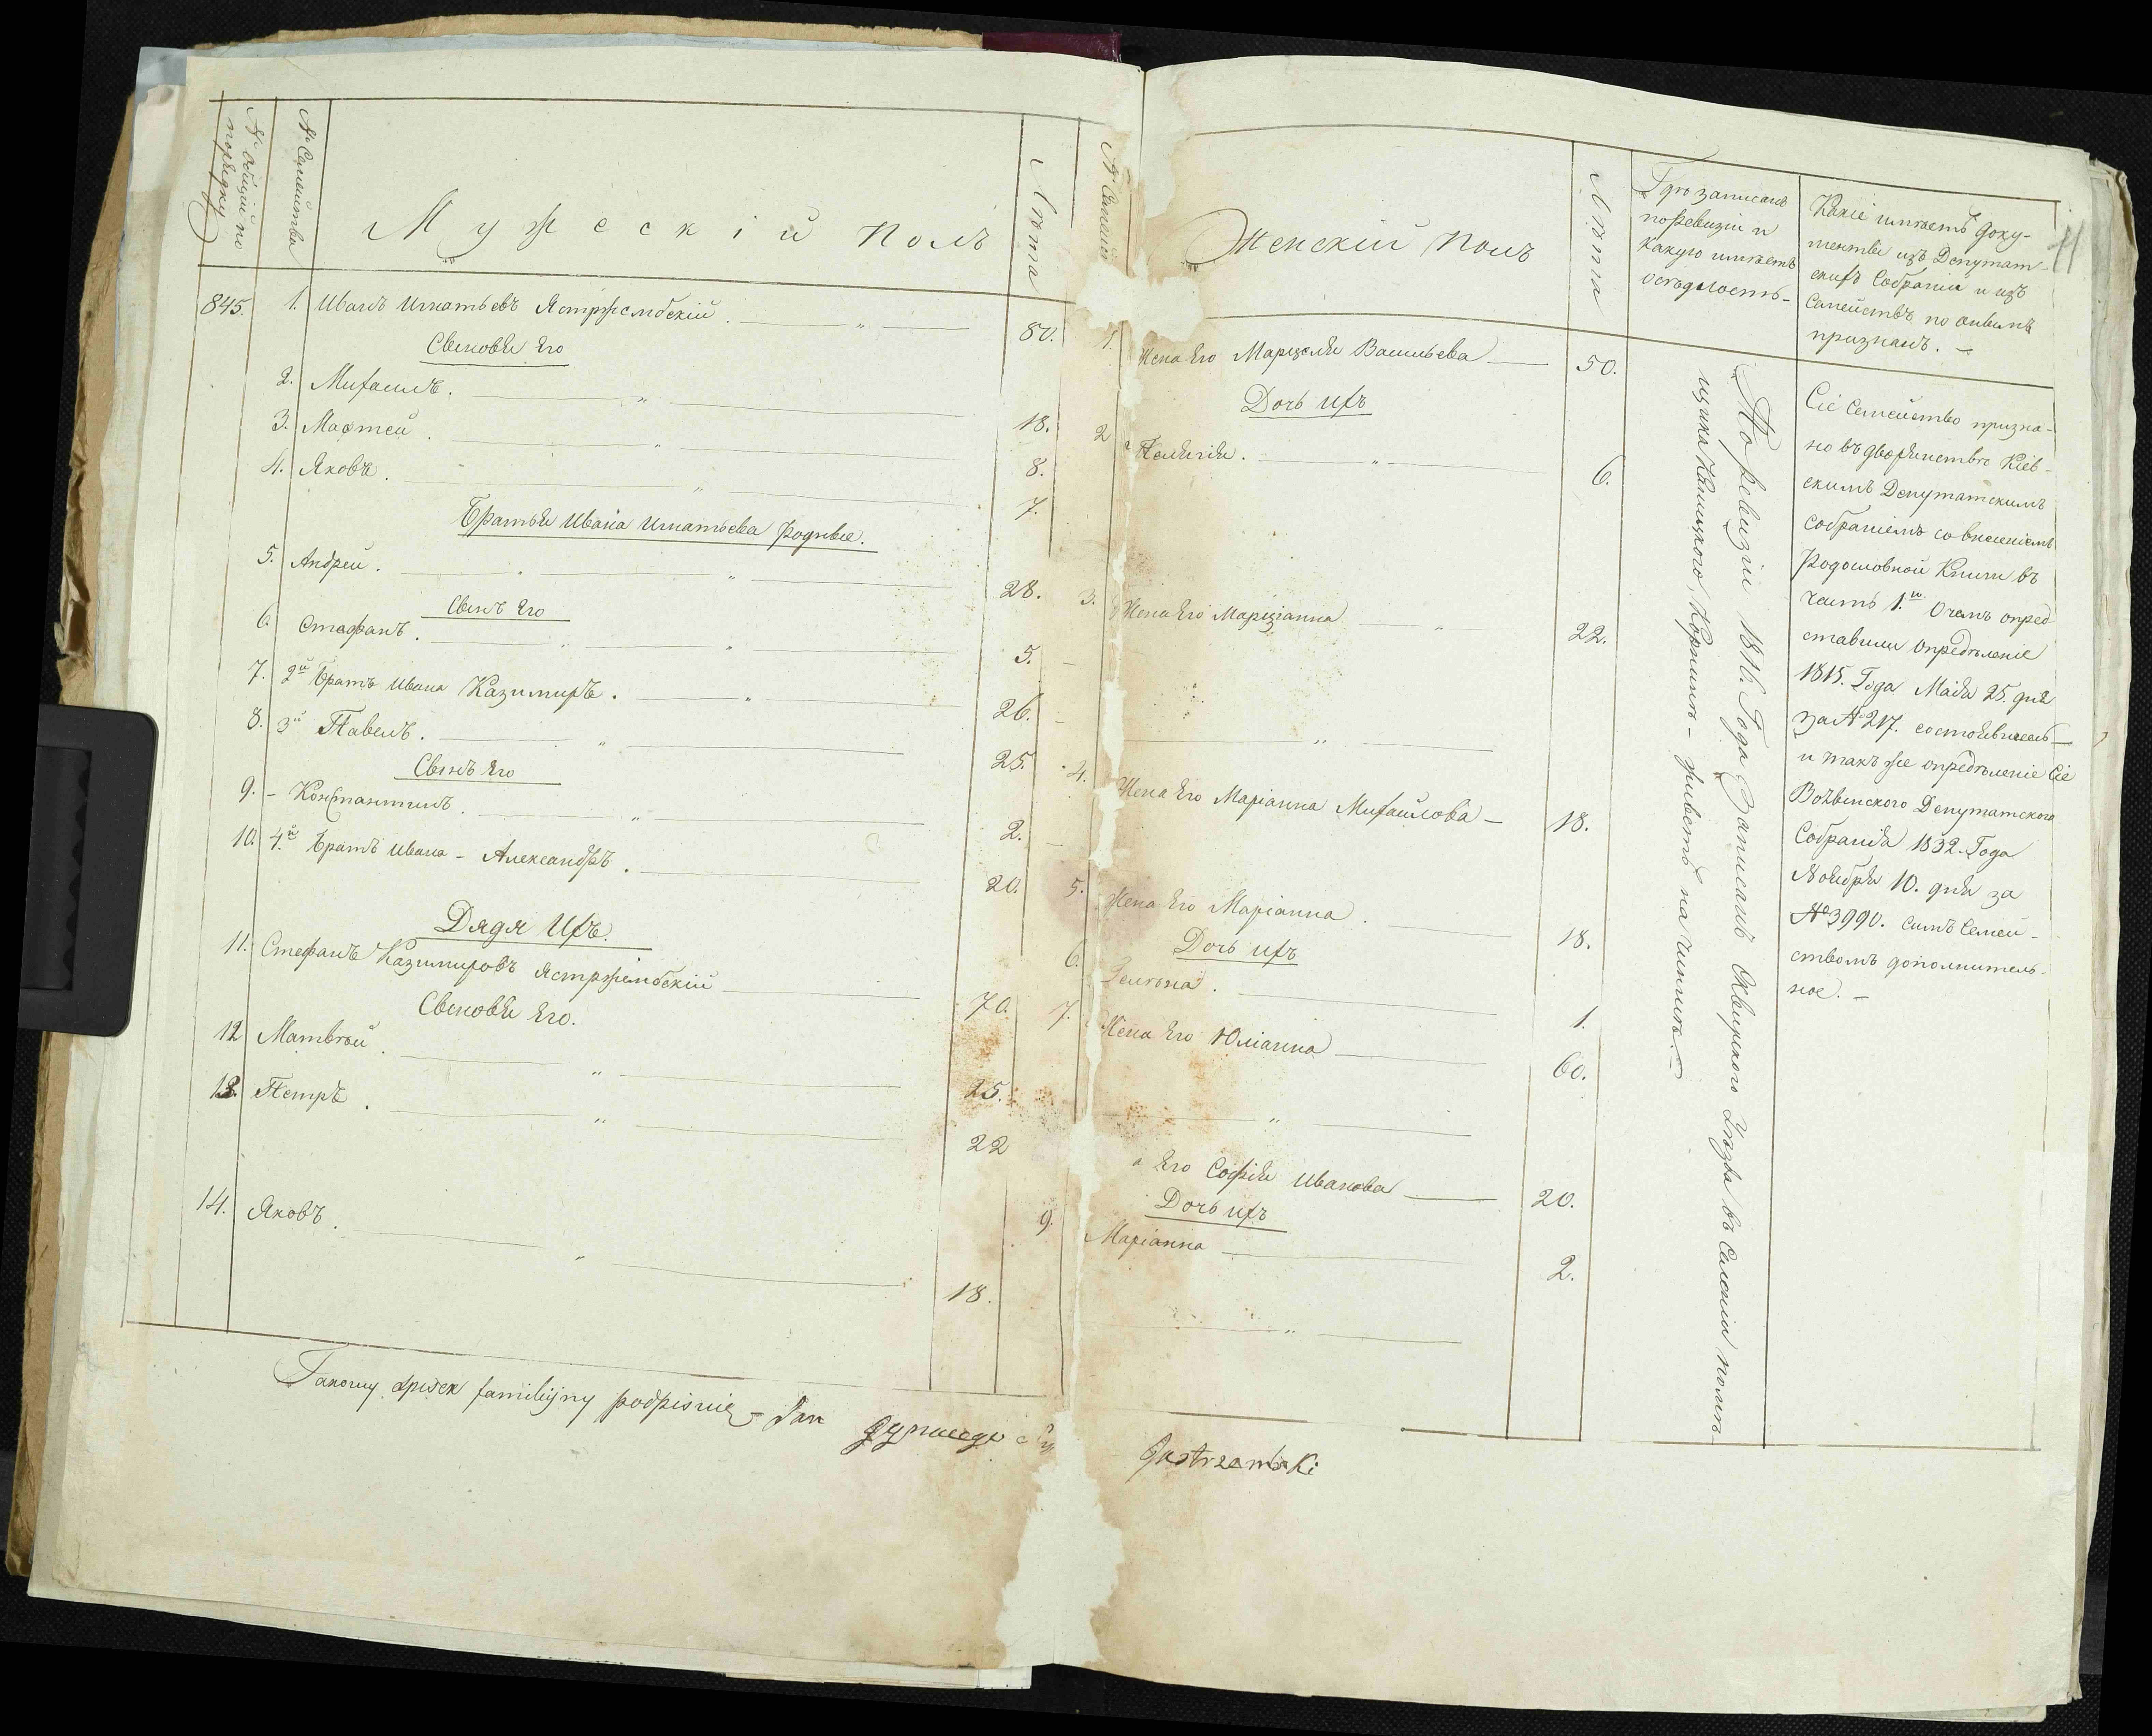 № общій по
порядку
№ Семейства
Мужескій полъ
Лѣта
845. 1. Иванъ Игнатьевъ Ястржембскій . — „ — 80.
Сыновья Его
2. Михаилъ . — „ — 18.
3. Маѳтей . — „ — 8.
4. Яковъ . — „ — 7.
Братья Ивана Игнатьева родные.
5. Андрей . — „ — 28.
Сынъ Его
6. Стефанъ . — „ — 5.
7. 2й Братъ Ивана Казимиръ . — „ — 26.
8. 3й Павелъ . — „ — 25.
Сынъ Его
9. – Константинъ . — „ — 2.
10. 4й Братъ Ивана – Александръ . — 20.
Дядя Ихъ.
11. Стефанъ Казимировъ Ястржембскій — 70.
Сыновья Его.
12 Матвѣй . — „ — 25.
13. Петръ . — „ — 22
14. Яковъ . — „ — 18.
Takowy spisek familijny podpisuię – Jan
№ Семей
Женскій полъ
Лѣта
1. Жена Его Марцеля Васильева — 50.
Дочь ихъ
2 Пелягія . — „ — 6.
3. Жена Его Маріянна — „ — 22.
— „ —
4. Жена Его Маріанна Михайлова — 18.
5. Жена Его Маріанна . — 18.
Дочь ихъ
6. . — 1.
7. Жена Его Юліанна — 60.
— „ —
а Его Софія Иванова — 20.
Дочь ихъ
9. Маріанна — 2.
— „ —
Jastrzembski
Гдѣ записанъ
по ревизіи и
какую имѣетъ
осѣдлость –
По ревизіи 1816. Года Записанъ Сквирскаго Уѣзда въ Селеніи помѣ-
щика Корнинѣ – живетъ на чиншѣ. —
11
Какіе имѣетъ доку-
менты изъ Депутат-
скихъ Собраніи и изъ
Семействъ по онымъ
признанъ. –
Сіе Семейство призна-
но въ дворянство Кіев-
скимъ Депутатскимъ
собраніемъ со внесеніемъ
Родословной Книги въ
часть 1.ю О чемъ пред
ставили опредѣленіе
1815. Года Маія 25. дня
за № 217. состоявшеесь –
и такъ же опредѣленіе Сіе
Депутатскаго
Собранія 1832. Года
Ноября 10. дня за
№ 3990. симъ Семей-
ствомъ дополнитель-
ное. –